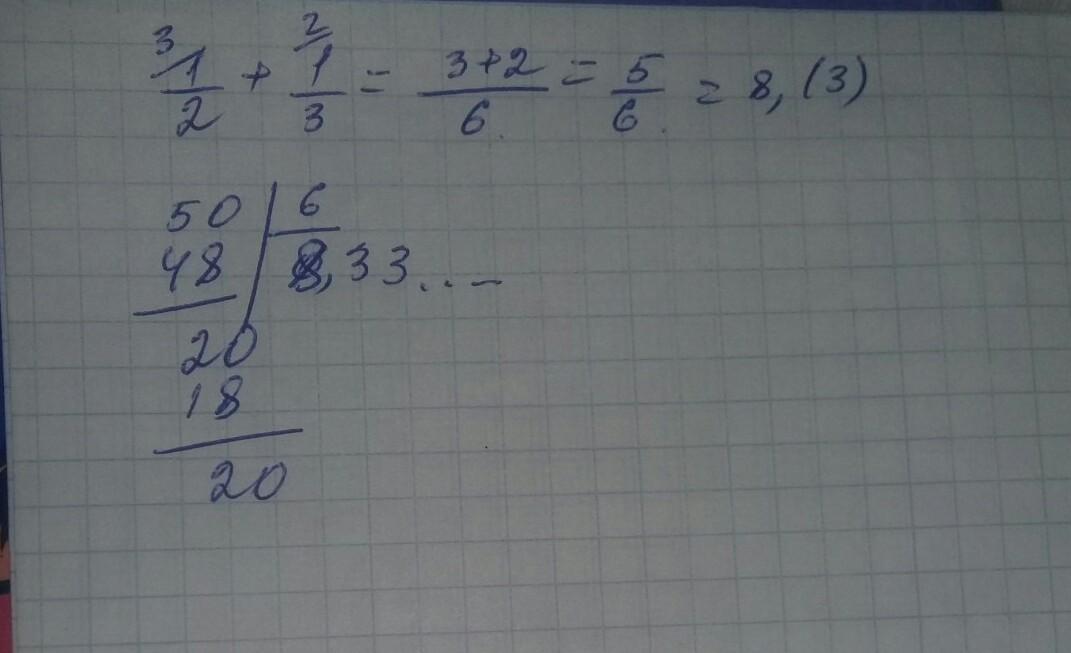 3 2
1/2 + 1/3 = 3+2/6 = 5/6 = 8,(3)
50 | 6
48 8,33...
20
18
20